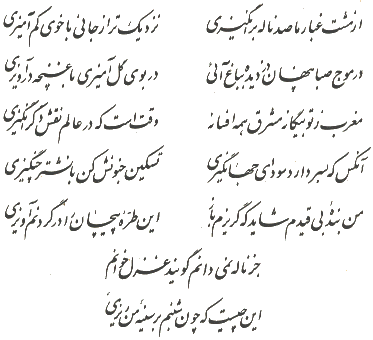 از مشت غبار ما صد ناله برانگیزی نزدیک‌تر از جانی با خوی کم آمیزی
در موج صبا پنهان دزدیده بباغ آئی در بوی گل آمیزی با غنچه در آویزی
مغرب ز تو بیگانه مشرق همه افسانه وقت است که در عالم نقش دگر انگیزی
آنکس که بسر دارد سودای جهانگیری تسکین جنونش کن با نشتر چنگیزی
من بندهٔ بی قیدم شاید که گریزم باز این طرهٔ پیچان را در گردنم آویزی
جز ناله نمی دانم گویند غزل خوانم
این چیست که چون شبنم بر سینهٔ من ریزی